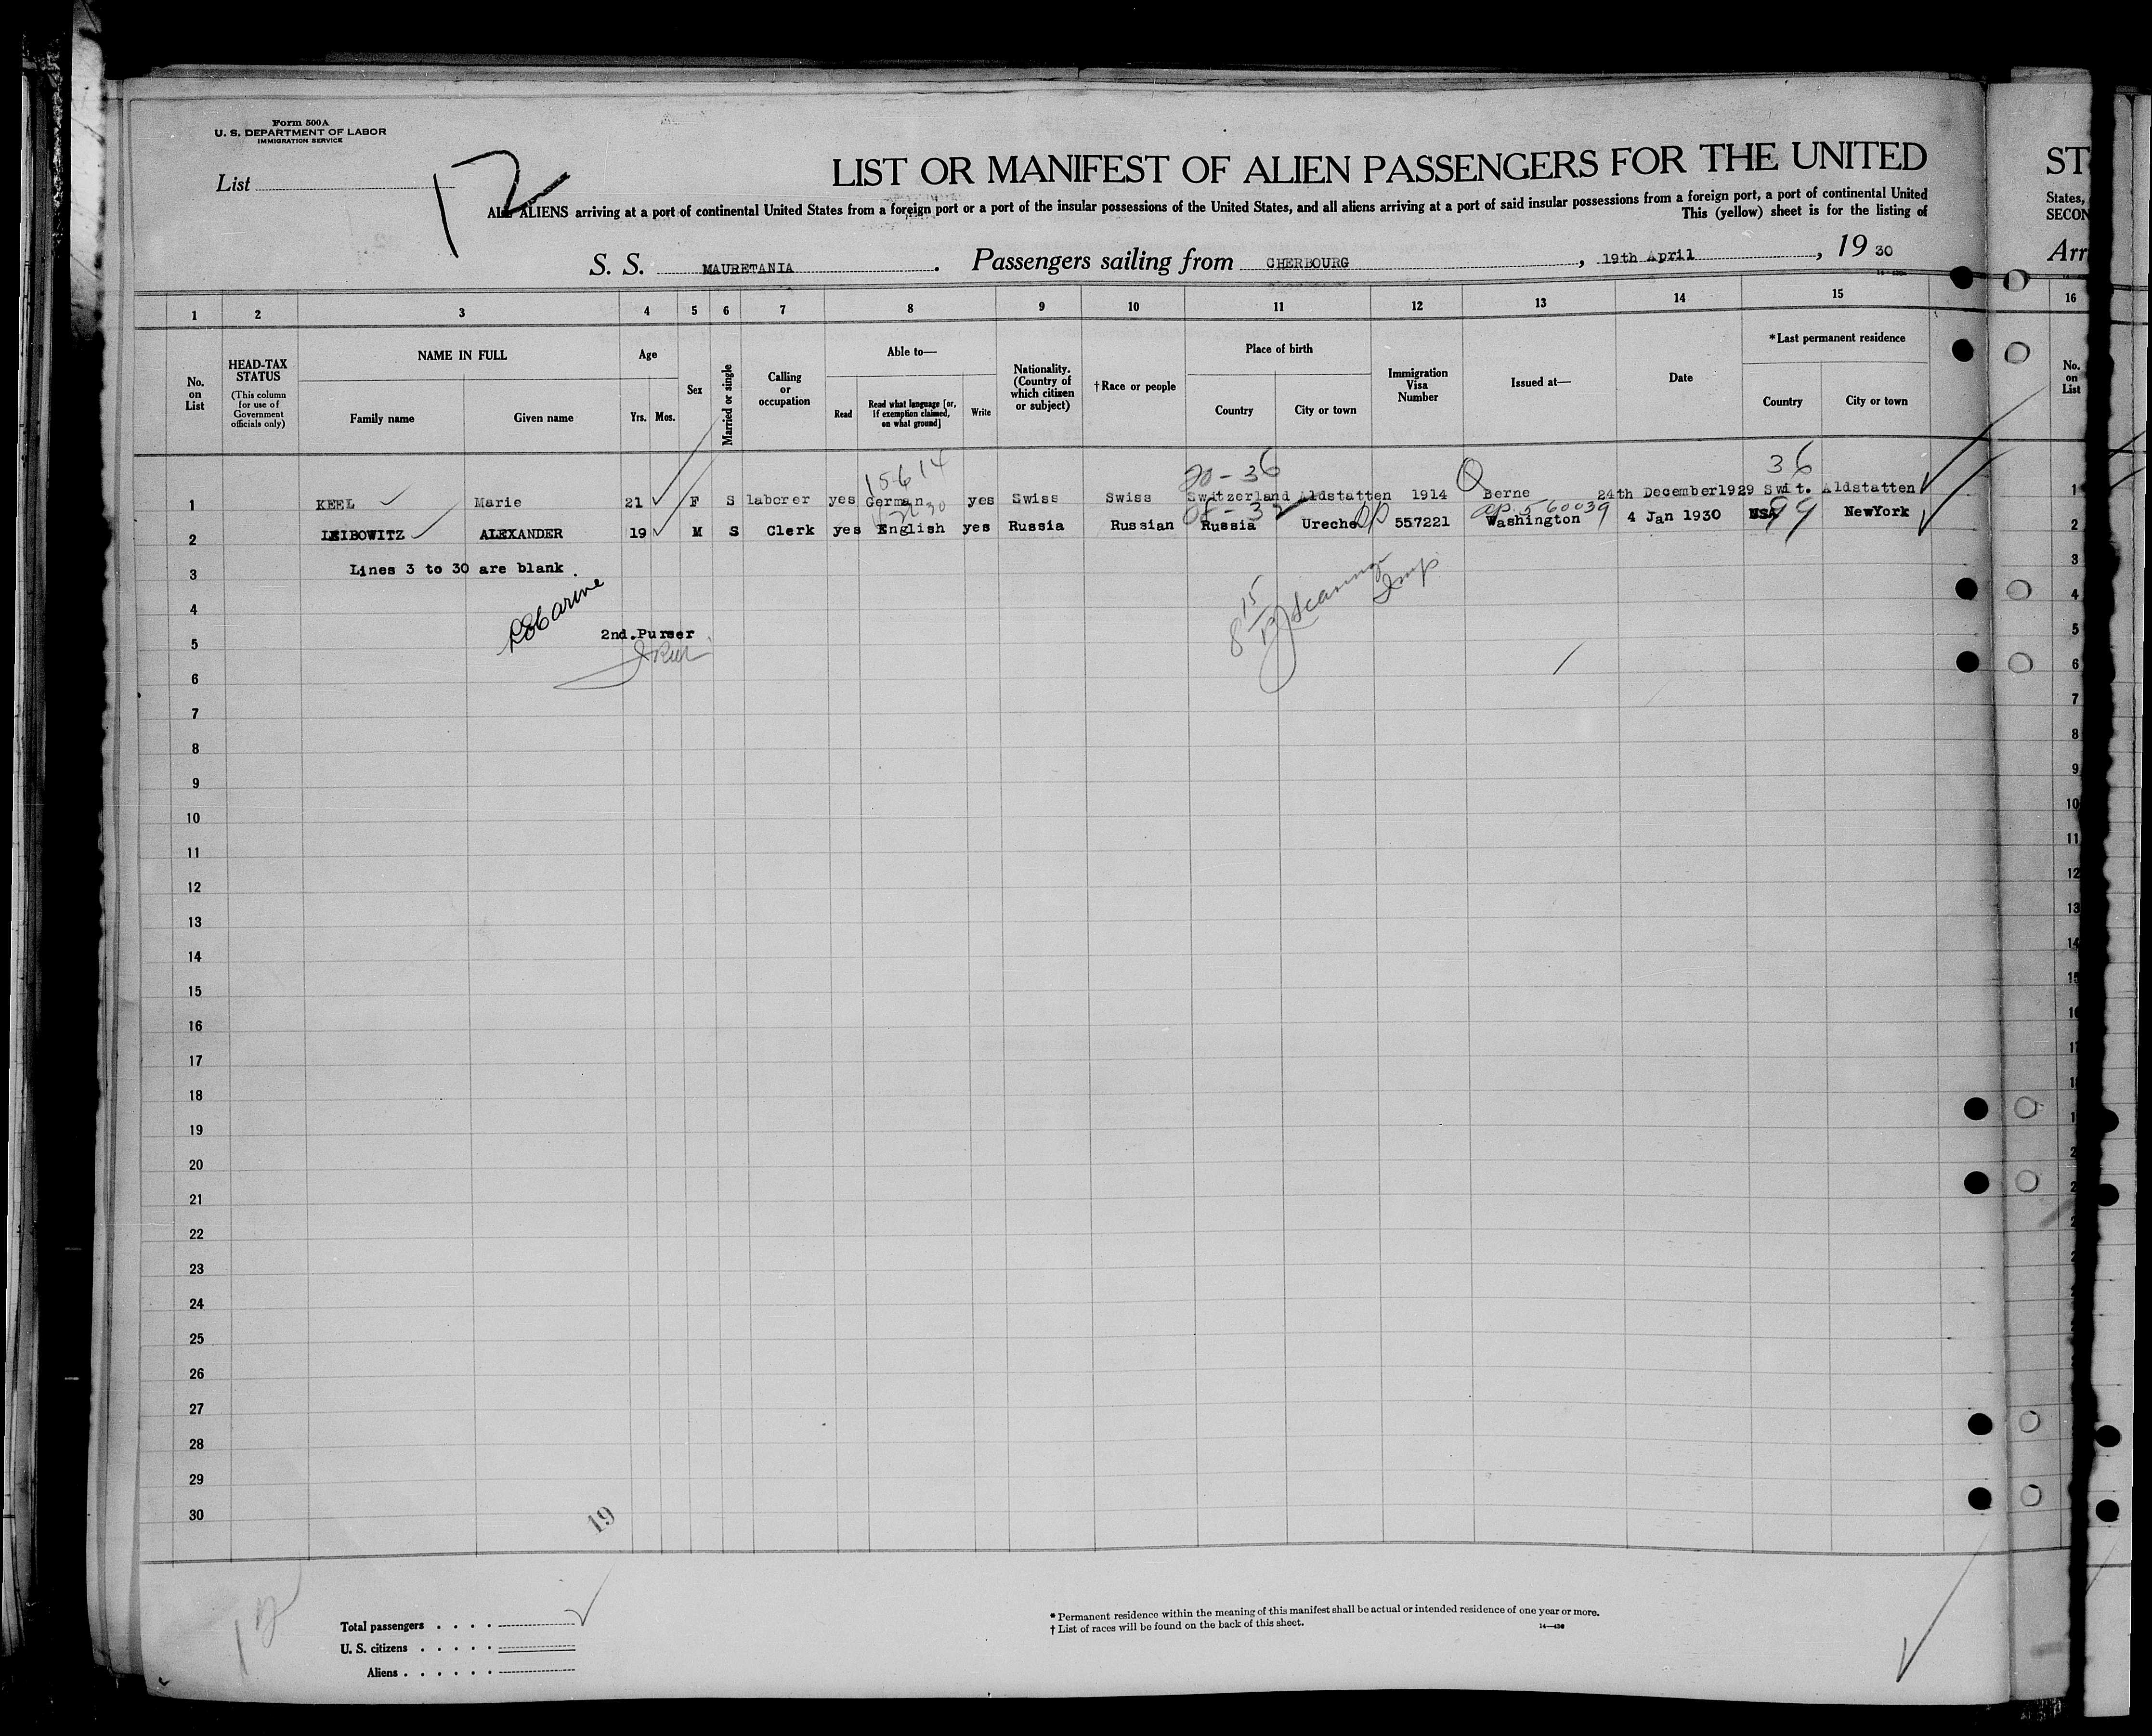 Form 500A
U. S. DEPARTMENT OF LABOR
IMMIGRATION SERVICE
List
12
LIST OR MANIFEST OF ALIEN PASSENGERS FOR THE UNITED
ALL ALIENS arriving at a port of continental United States from a foreign port or a port of the insular possessions of the United States, and all aliens arriving at a port of said insular possessions from a foreign port, a port of continental United
This (yellow) sheet is for the listing of
S. S. MAURETANIA . Passengers sailing from CHERBOURG , 19th April , 19 30
ST
States,
SECON
Arr
1 2 3 4 5 6 7 8 9 10 11 12 13 14 15 16
No. on List
HEAD-TAX STATUS
(This column for use of Government officials only)
NAME IN FULL
Family name Given name
Age
Yrs. Mos.
Sex
Married or single
Calling or occupation
Able to—
Read
Read what language [or, if exemption claimed, on what ground]
Write
Nationality. (Country of which citizen or subject)
†Race or people
Place of birth
Country City or town
Immigration Visa Number
Issued at—
Date
*Last permanent residence
Country City or town
No. on List
15614 20-36 36
1 KEEL Marie 21 F S laborer yes German yes Swiss Swiss Switzerland Aldstatten 1914 Berne 24th December1929 Swit. Aldstatten 1
560039 99
2 LEIBOWITZ ALEXANDER 19 M S Clerk yes English yes Russia Russian Russia Ureche 557221 Washington 4 Jan 1930 USA NewYork 2
3 Lines 3 to 30 are blank. 3
4 4
2nd.Purser
5 5
6 6
7 7
8 8
9 9
10 10
11 11
12 12
13 13
14 14
15 15
16
17
18
19
20
21
22
23
24
25
26
27
28
29
30
19
12
Total passengers
U. S. citizens
Aliens
* Permanent residence within the meaning of this manifest shall be actual or intended residence of one year or more.
† List of races will be found on the back of this sheet.
14—430